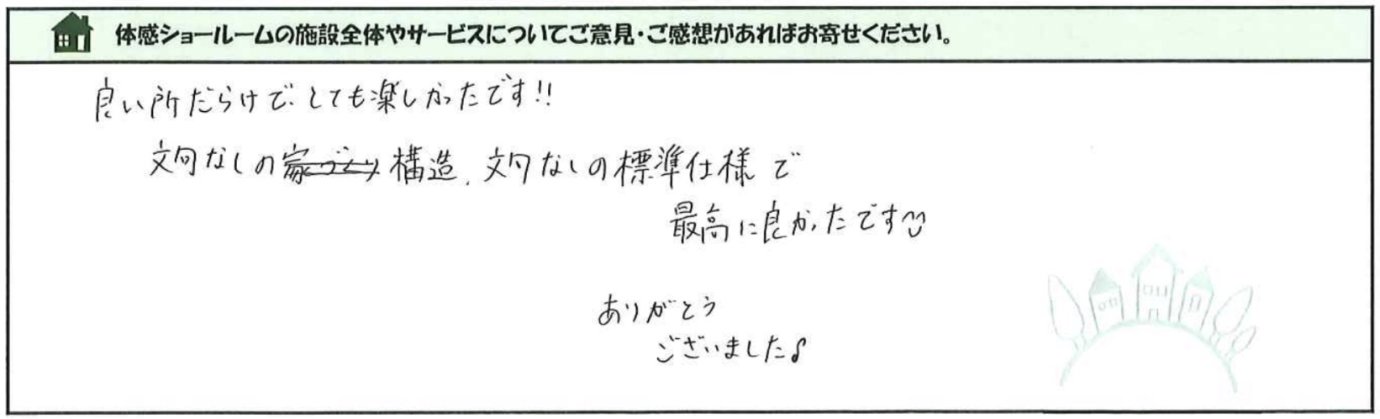 体感ショールームの施設全体やサービスについてご意見・ご感想があればお寄せください。
良い所だらけで、とても楽しかったです!!
文句なしの家づくり構造、文句なしの標準仕様で
最高に良かったです
ありがとう
ございました♪